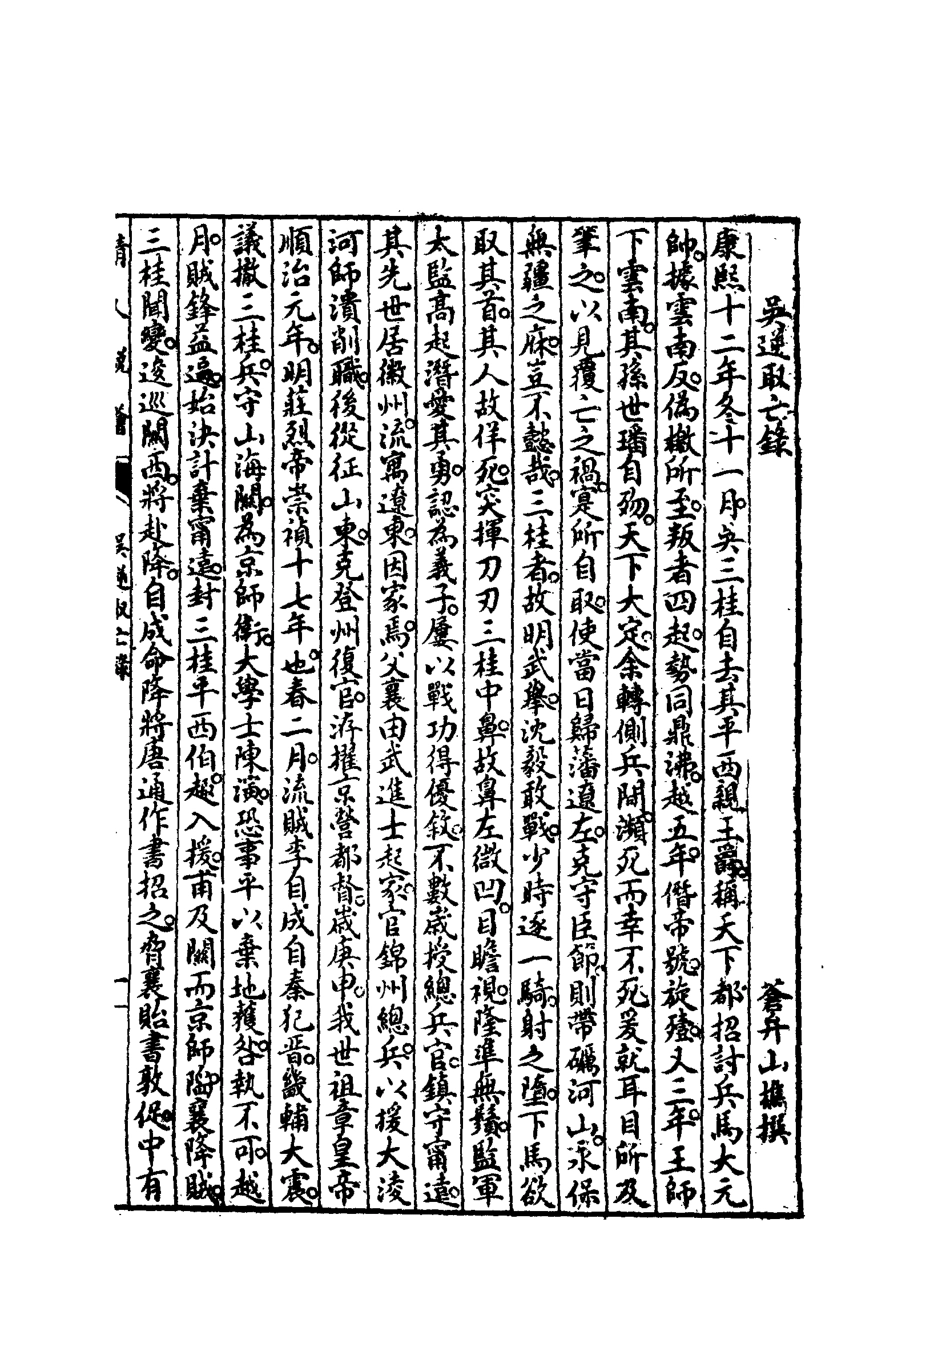 吳逆取亡錄　蒼弁山樵撰
康熙十二年冬十一月。吳三桂自去其平西親王爵。稱天下都招討兵馬大元
帥。據雲南反。偽檄所至。叛者四起。勢同鼎沸。越五年。僭帝號。旋殪。又三年。王師
下雲南。其孫世璠自刎。天下大定。余轉側兵間。瀕死而幸不死。爰就耳目所及
筆之。以見覆亡之禍。寔所自取。使當日歸藩遼左。克守臣節。則帶礪河山。永保
無疆之庥。豈不懿哉。三桂者。故明武舉。沈毅敢戰。少時逐一騎。射之墮。下馬欲
取其首。其人故佯死。突揮刀刃三桂中鼻。故鼻左微凹。目瞻視。隆準無鬚。監軍
太監高起潛愛其勇。認為義子。屢以戰功得優敘。不數歲授總兵官。鎮守甯遠。
其先世居徽州。流寓遼東。因家焉。父襄由武進士起家。官錦州總兵。以援大淩
河師潰削職。後從征山東。克登州復官。洊擢京營都督。歲庚申。我世祖章皇帝
順治元年。明莊烈帝崇禎十七年也。春二月。流賊李自成自秦犯晉。畿輔大震。
議撤三桂兵。守山海關。為京師衛。大學士陳演。恐事平以棄地獲咎。執不可。越
月。賊鋒益逼。始決計棄甯遠。封三桂平西伯。趣入援。甫及關而京師陷。襄降賊。
三桂聞變。逡巡關西。將赴降。自成命降將唐通作書招之。脅襄貽書敦促。中有
清人說薈　吳逆取亡錄　一